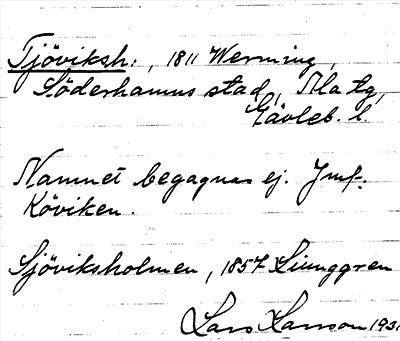 Tjöviksh., 1811 Werming,
Söderhamns stad, Ala tg,
Gävleb. l.
Namnet begagnas ej. Jmf.
Köviken.
Sjöviksholmen, 1857 Ljunggren
Lars Larsson 193